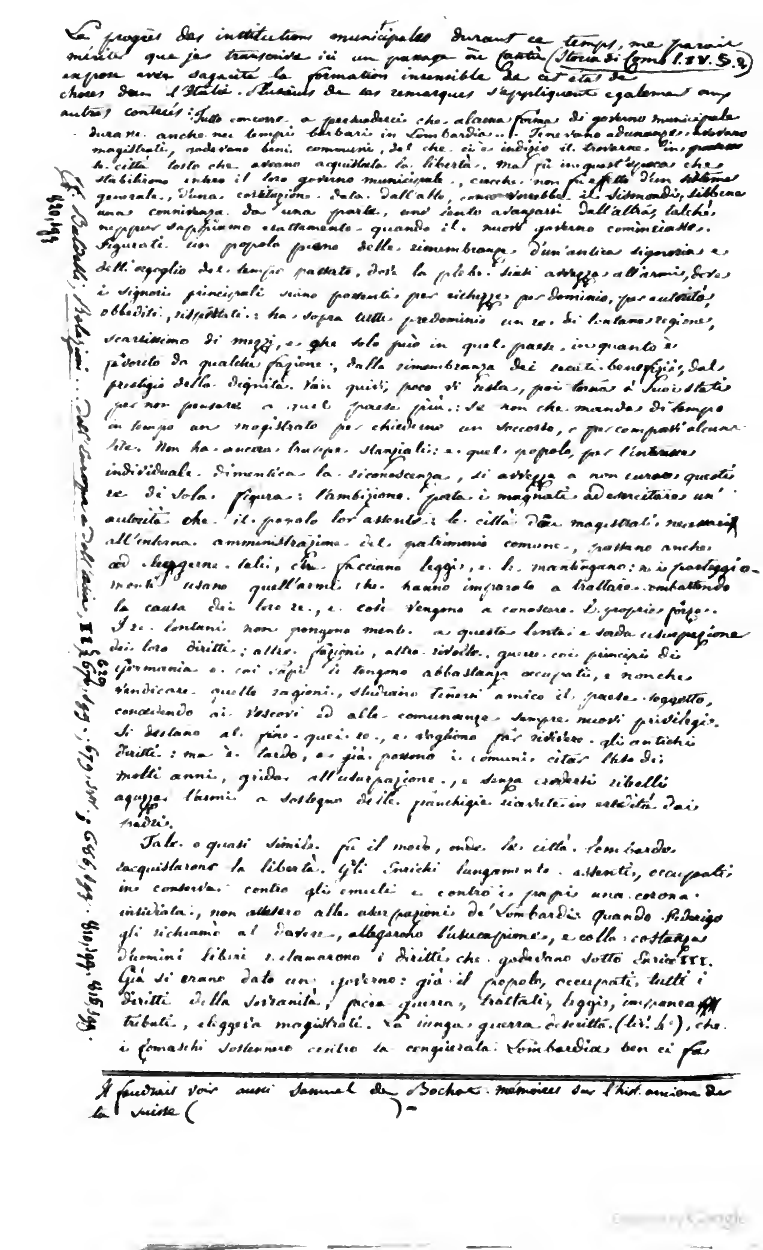 Le progrès des institutions municipales durant ce temps, me paroit
mériter que je transcrive ici un passage où Cantù (Storia di Como l. IV. §. 2)
expose avec sagacité la formation insensible de cet état de
choses dans l'Italie. Plusieurs de ses remarques s'appliquent également aux
autres contrées: Tutto concorre a persuaderci che alcuna forma di governo municipale
durasse anche nei tempi barbari in Lombardia... Tenevano adunanze, avevano
magistrati, godevano beni communi, del che ci è indizio il trovarne in possesso
le città tosto che ebbero acquistata la libertà. Ma fu in quest'epoca che
stabilirono intero il loro governo municipale, cosicchè non fu effetto d'un sistema
generale, d'una costituzione data dall'alto, come vorrebbe il Sismondi, sibbene
una connivenza da una parte, uno lento avanzarsi dall'altra, talchè
neppur sappiamo esattamente quando il nuovo governo cominciasse.
Figurati un popolo pieno delle rimembranze d'un'antica signoria e
dell'orgoglio del tempo passato, dove la plebe siasi avvezza all'armi, dove
i signori principali siano possenti per richezze per dominio, per autorità,
obbediti, rispettati: ha sopra tutti predominio un re di lontana regione,
scarsissimo di mezzi, e che solo può in quel paese in quanto è
favorito da qualche fazione, dalla rimembranza dei recati benefizi, dal
prestigio della dignità. Vien quivi, poco vi resta, poi torna a' suoi stati
per non pensare a quel paese più: se non che manda di tempo
in tempo un magistrato per chiedervi un soccorso, o per comporvi alcuna
lite. Non ha ancora truppe stanziali: e quel popolo, per l'interesse
individuale dimentica la riconoscenza, si avvezza a non curare questi
re di sola figura: l'ambizione porta i magnati ad esercitare un'
autorità che il popolo lor assente: le città dan magistrati necessarij
all'interna amministrazione del patrimonio comune, passano anche
ad eleggerne tali, che facciano leggi, e le mantengano: nei parteggia-
menti usano quell'armi che hanno imparato a trattare combattendo
la causa dei loro re, e così vengono a conoscere le proprie forze.
I re lontani non pongono mente a questa lenta e sorda usurpazione
dei loro diritti: altre fazioni, altre rivolte, guerre coi principi di
Germania e coi papi li tengono abbastanza occupati, e nonchè
vendicare quelle ragioni, studiano tenersi amico il paese soggetto,
concedendo ai vescovi ed alle comunanze sempre nuovi privilegi.
Si destano al fine quei re, e vogliono far rivivere gli antichi
diritti: ma è tardo, e già possono i comuni citar l'uso di
molti anni, gridar all'usurpazione, e senza credersi ribelli
aguzzar l'armi a sostegno delle franchigie ricevute in eredità dai
padri.
Tale o quasi simile fu il modo, onde le città lombarde
racquistarono la libertà. Gli Enrichi lungamente assenti, occupati
in conservar contro gli emuli e contro i papi una corona
insidiata, non attesero alle usurpazioni de' Lombardi: quando Federigo
gli richiamò al dovere, allegarono l'usucapione, e colla costanza
d'uomini liberi reclamarono i diritti che godevano sotto Enrico III.
Già si erano dato un governo: già il popolo, occupati tutti i
diritti della sovranità, facea guerra, trattati, leggi, imponeva
tributi, eleggeva magistrati. La lunga guerra descritta (lib. 4º), che
i Comaschi sostennero contro la congiurata Lombardia ben ci fa
Il faudrait voir aussi Samuel de Bochat mémoires sur l'hist. ancienne de
la Suisse ( ) -
Cf. Balbelli, Relazioni... dell'Europa e dell'Asia, II, § 620
670, sqq.; 679, sqq.; 686, sqq. 810, sqq. 818, sqq.
420, sqq
Google